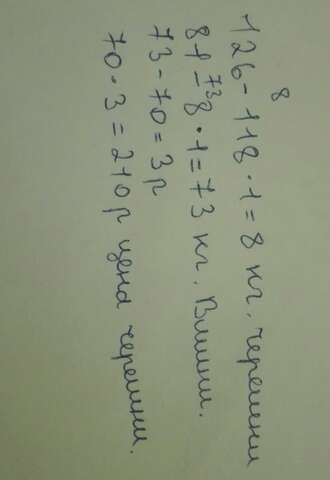 8
126 - 118 · 1 = 8 кг. черешни
73
81 - 8 · 1 = 73 кг. Вишни.
73 - 70 = 3 р
70 · 3 = 210 р цена черешни.